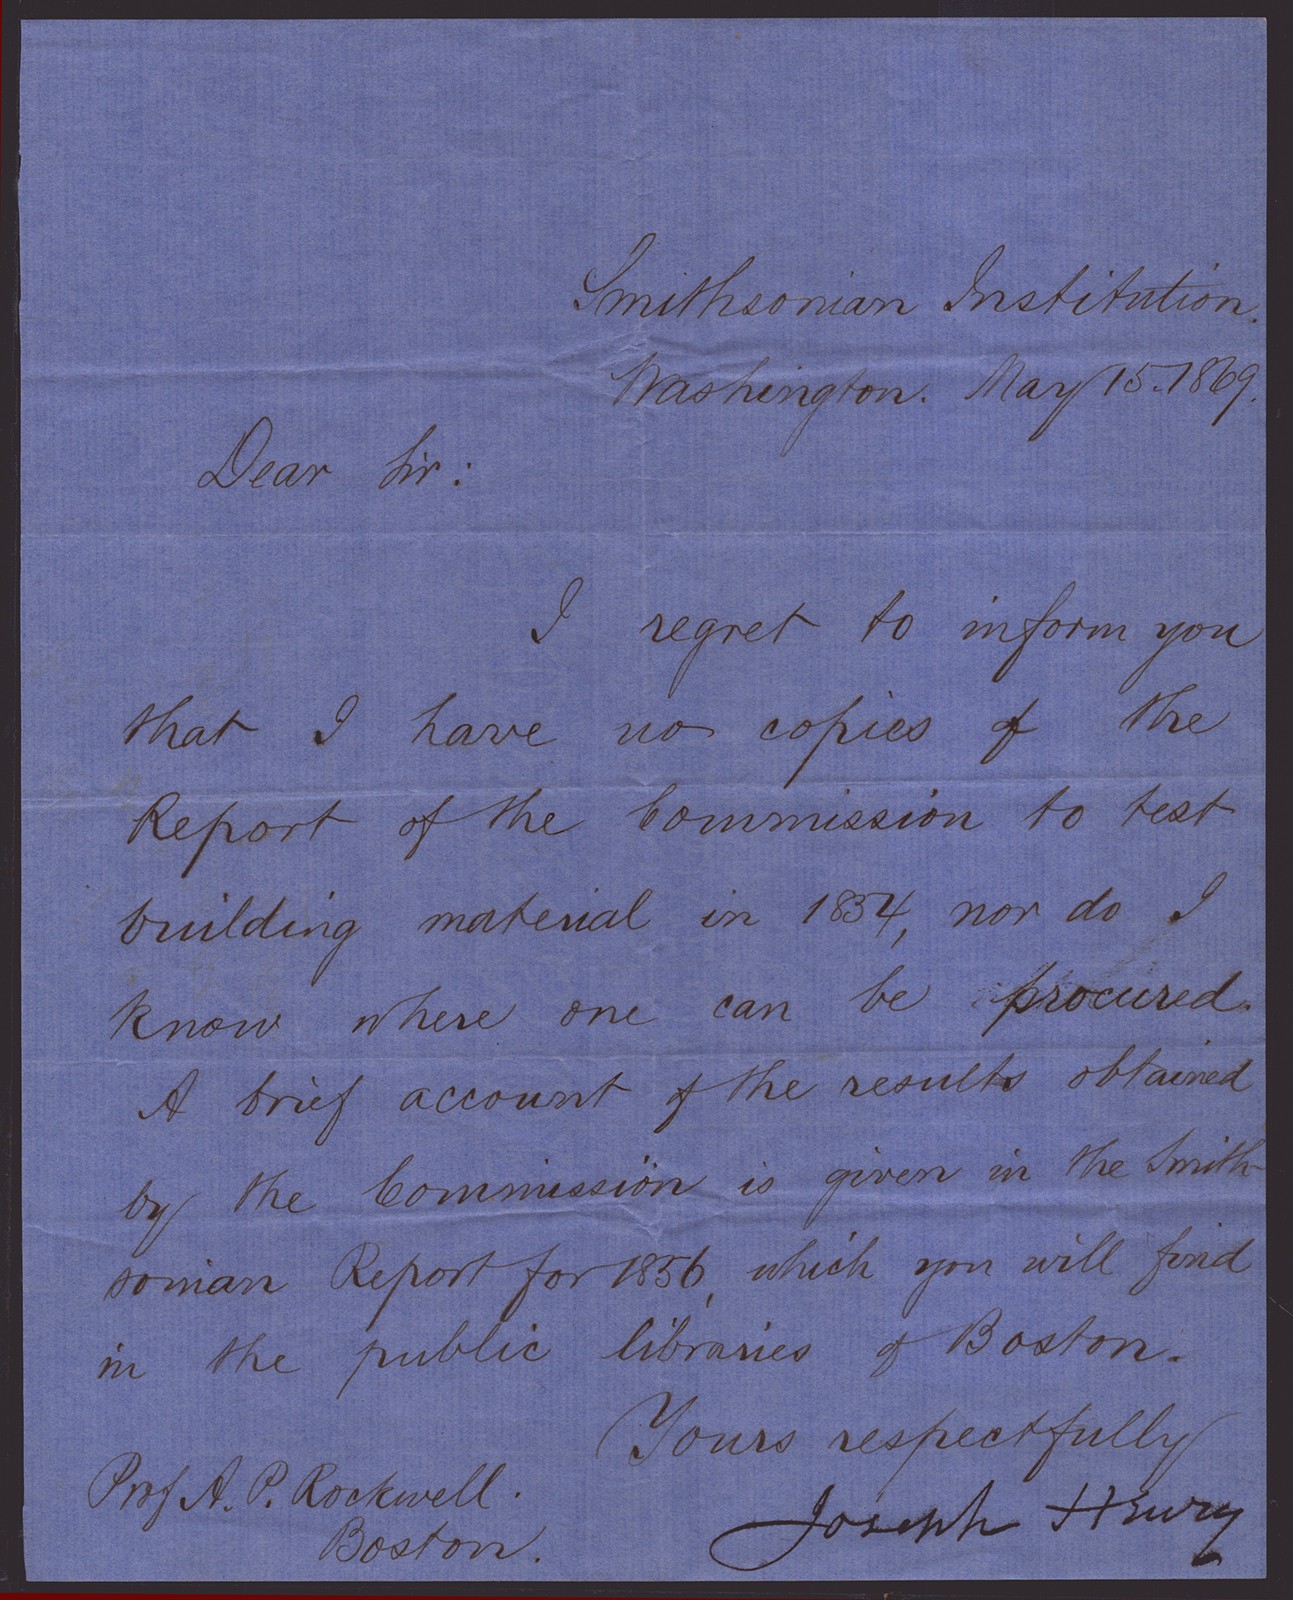 Smithsonian Institution.
Washington. May 15. 1869.
Dear Sir:
I regret to inform you
that I have no copies of the
Report of the Commission to test
building material in 1854, nor do I
know where one can be procured.
A brief account of the results obtained
by the Commission is given in the Smith-
sonian Report for 1856, which you will find
in the public libraries of Boston.
Yours respectfully
Joseph Henry
Prof A. P. Rockwell.
Boston.